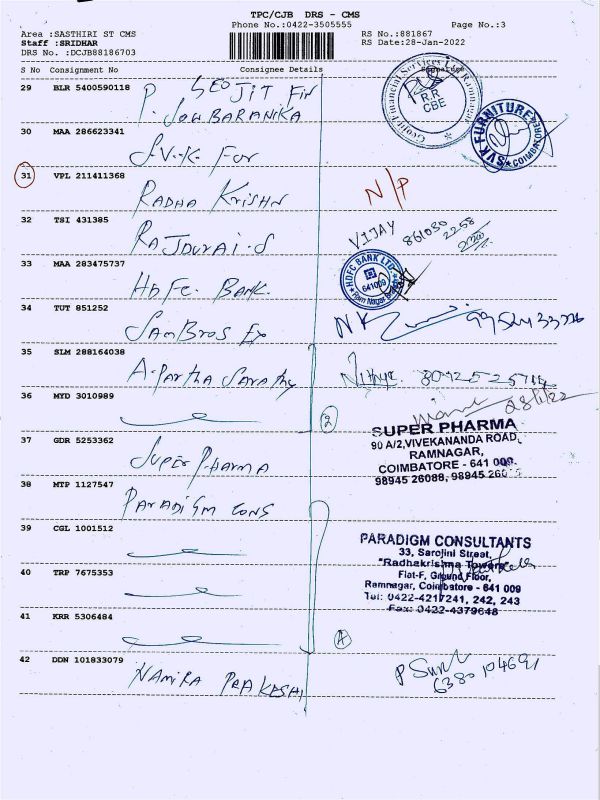 TPC/CJB DRS - CMS
Phone No.:0422-3505555
Page No.:3
Area :SASTHIRI ST CMS
Staff :SRIDHAR
DRS No. :DCJB88186703
RS No.:881867
RS Date:28-Jan-2022
S No Consignment No Consignee Details Signature
29 BLR 5400590118 GEOJIT Fin
P.
30 MAA 286623341 S.V.K. Fur
SVK FURNITURE COIMBATORE
31 VPL 211411368 RADHA KRISHN N/P
32 TSI 431385 RAJDURAI-S VIJAY
33 MAA 283475737 HDFC. BANK
HDFC BANK LTD
641009
Ram Nagar Branch
34 TUT 851252 SAMBROS Ex
35 SLM 288164038 A-PARTHA SARATHY
36 MYD 3010989 2 28/1/22
37 GDR 5253362 SUPER PHARMA
SUPER PHARMA
90 A/2,VIVEKANANDA ROAD,
RAMNAGAR,
COIMBATORE - 641 009.
98945 26088, 98945
38 MTP 1127547 PARADIGM CONS
39 CGL 1001512
PARADIGM CONSULTANTS
33, Sarojini Street,
"Radhakrishna Towers"
Flat-F, Ground Floor,
Ramnagar, Coimbatore - 641 009
Tel: 0422-4217241, 242, 243
Fax: 0422-4379648
40 TRP 7675353
41 KRR 5306484
42 DDN 101833079 NAMIRA PRAKASH
6380104691